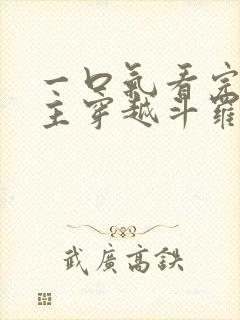 一口氣看完
主穿越斗羅
武廣高鉄